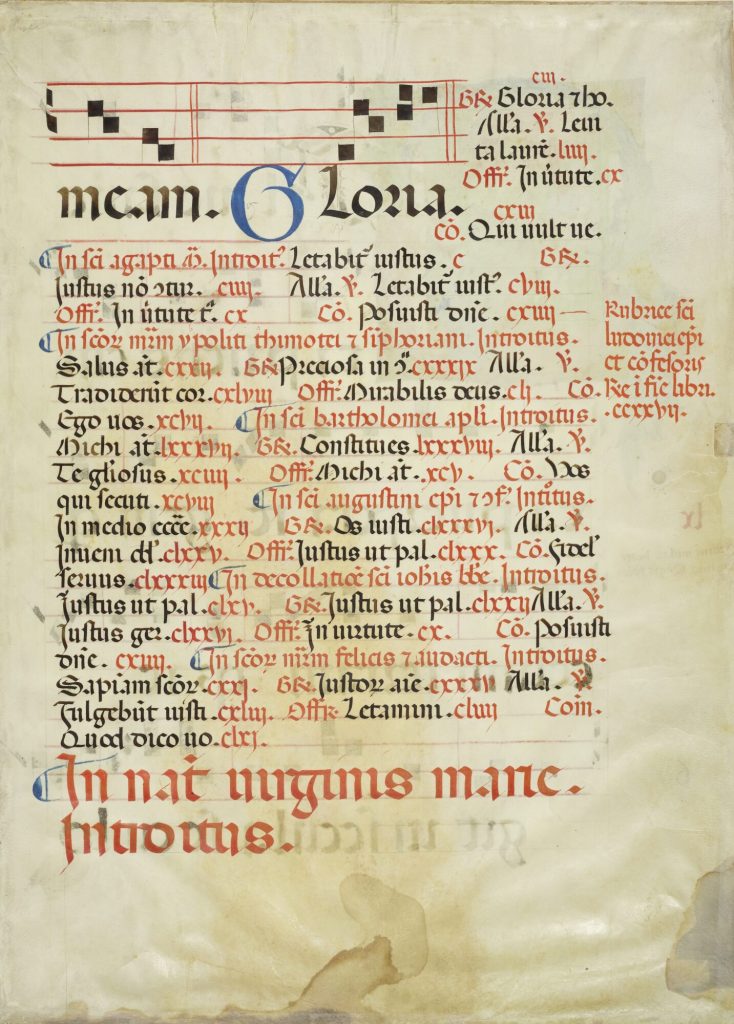 ciii.
GR. Gloria ⁊ ho.
All'a. V. Leui
ta laurē. liiij.
Offr̄. In ūtute. cx
meam. Gloria. cxiii
cō. Qui uult ue.
In sc̄i agapiti m̄. Introit'. Letabit̄ iustus. c GR.
Justus nō ɔtur. ciiij. All'a. V. Letabit̄ iust'. cviij.
Offr̄. In ūtute t'. cx Cō. Posuisti dn̄e. cxiiij
In sc̄oꝝ mr̄m ypoliti thimotei et sīphoriani. Introitus.
Salus aūt. cxxij. GR. Preciosa in ɔ̄. cxxxix All'a. V.
Tradiderūt cor. cxlviij Offr̄. Mirabilis deus. cli. Cō.
Ego uos. xcvij. In sc̄i bartholomei apl̄i. Introitus.
Michi aūt. lxxxvij. GR. Constitues. lxxxviij. All'a. V.
Te gl̄iosus. xciiij. Offr̄. Michi aūt. xcv. Cō. Uos
qui secuti. xcviij In sc̄i augustini ep̄i et ɔf'. Intōitus.
In medio ecc̄e. xxxij GR. Os iusti. clxxxvi. All'a. V.
Inueni dd'. clxxv. Offr̄. Justus ut pal. clxxx. Cō. Fidel'
seruus. clxxxiij In decollatiōe sc̄i ioh̄is bb̄e. Introitus.
Justus ut pal. clxv. GR. Justus ut pal. clxxij All'a. V.
Justus ger. clxxvi. Offr̄. In uirtute. cx. Cō. Posuisti
dn̄e. cxiiij. In sc̄oꝝ mr̄m felicis ⁊ audacti. Introitus.
Sapīam sc̄oꝝ. cxxi. GR. Justoꝝ aīe. cxxxv All'a. V.
Fulgebūt iusti. cxliij. Offr. Letamini. clviij Com̄.
Quod dico uo. clxi.
In nat̄ uirginis marie.
Introitus.
Rubrice sc̄i
ludouici ep̄i
et cōfesoris
Re ī fīe libri.
ccxxvij.